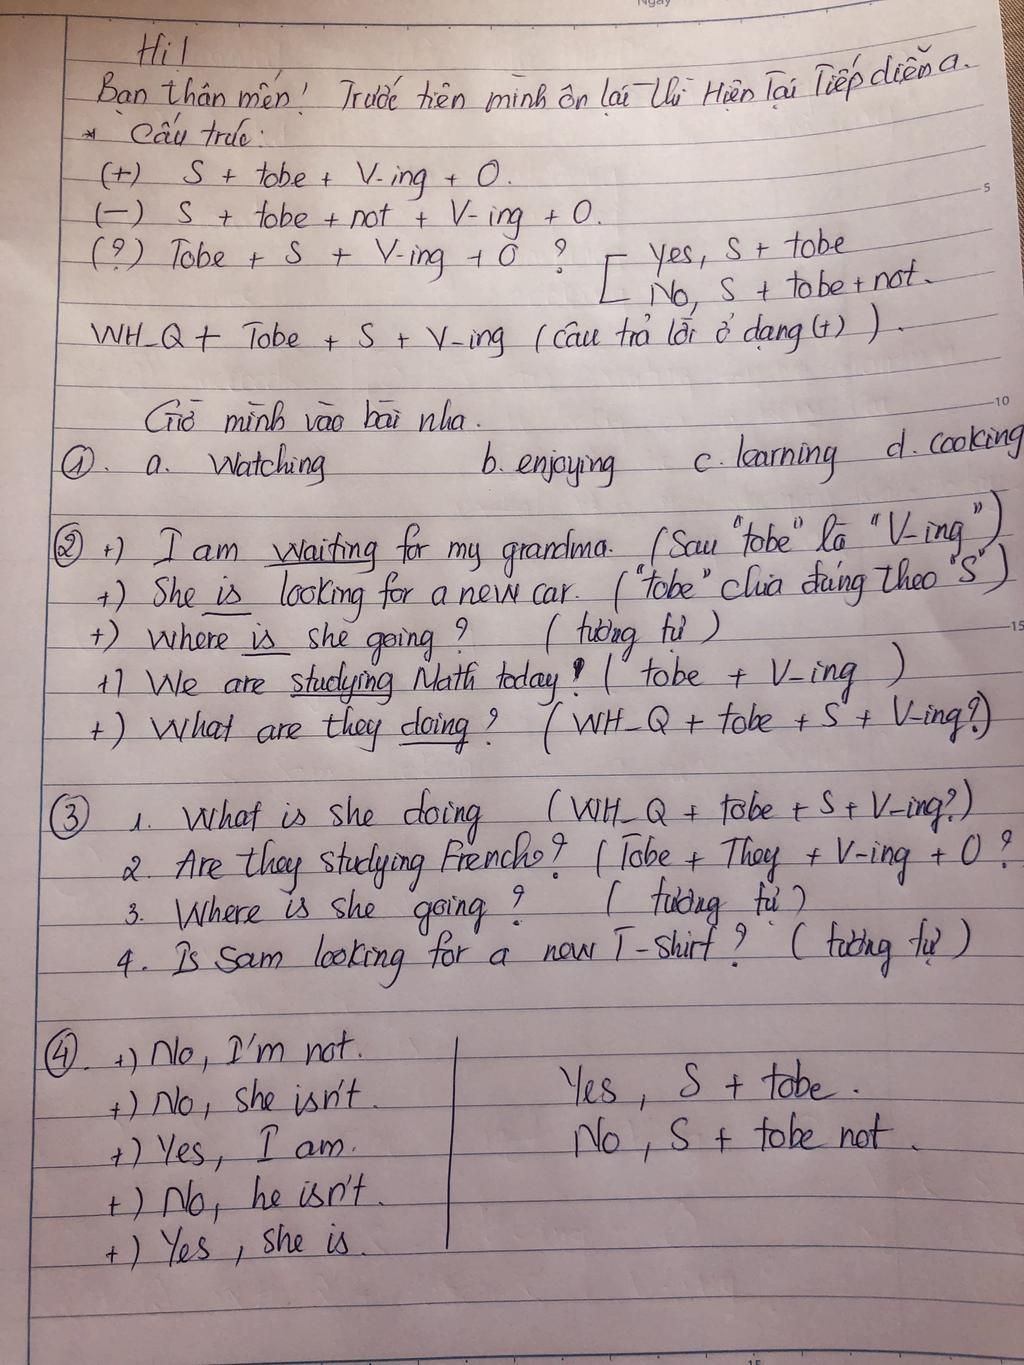 Ngày
Hi!
Bạn thân mến! Trước tiên mình ôn lại thì Hiện Tại Tiếp diễn ạ.
* Cấu trúc:
(+) S + tobe + V-ing + O.
5
(-) S + tobe + not + V-ing + O.
(?) Tobe + S + V-ing + O ? [ Yes, S + tobe
No, S + tobe + not.
WH_Q + Tobe + S + V-ing (câu trả lời ở dạng (+) ).
10
Giờ mình vào bài nha.
①. a. Watching b. enjoying c. learning d. cooking
② +) I am waiting for my grandma. (Sau "tobe" là "V-ing")
+) She is looking for a new car. ("tobe" chia đúng theo "S")
+) Where is she going? (tương tự)
15
+) We are studying Math today! (tobe + V-ing)
+) What are they doing? (WH_Q + tobe + S + V-ing?)
③ 1. What is she doing (WH_Q + tobe + S + V-ing?)
2. Are they studying French? (Tobe + They + V-ing + O ?
3. Where is she going? (tương tự)
4. Is Sam looking for a new T-shirt? (tương tự)
④. +) No, I'm not.
+) No, she isn't.
+) Yes, I am.
+) No, he isn't.
+) Yes, she is.
Yes, S + tobe.
No, S + tobe not.
15